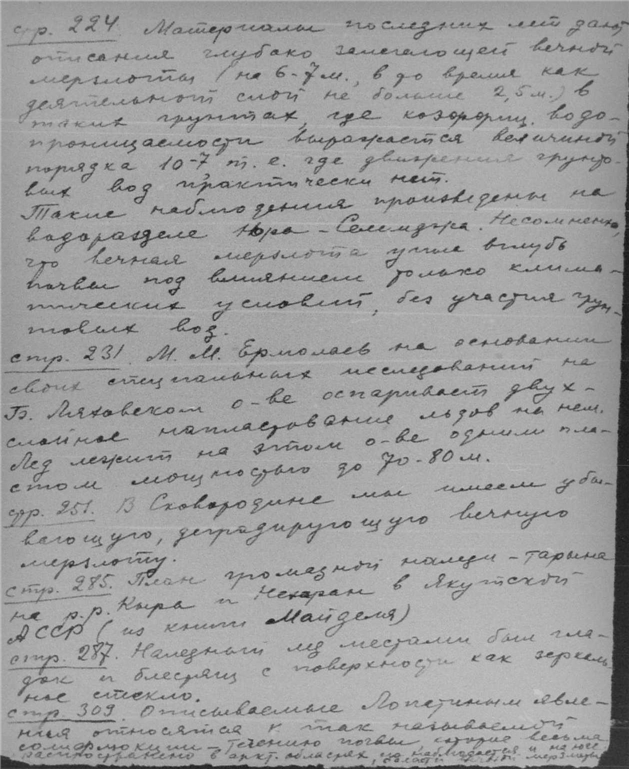 стр. 224. Материалы последних лет дают
описания глубоко залегающей вечной
мерзлоты (на 6-7 м., в то время как
деятельный слой не больше 2,5 м.) в
таких грунтах, где коэффиц. водо-
проницаемости выражается величиной
порядка 10-7 т.е. где движения грунто-
вых вод практически нет.
Такие наблюдения произведены на
водоразделе Нора - Селемджа. Несомненно,
что вечная мерзлота ушла вглубь
почвы под влиянием только клима-
тических условий, без участия грун-
товых вод.
стр. 231. М. М. Ермолаев на основании
своих специальных исследований на
Б. Ляховском о-ве оспаривает двух-
слойное напластование льдов на нем.
Лед лежит на этом о-ве одним пла-
стом мощностью до 70-80 м.
стр. 251. В Сковородине мы имеем убы-
вающую, деградирующую вечную
мерзлоту.
стр. 285. План громадной наледи - тарына
на р.р. Кыра и в Якутской
АССР (из книги Майделя)
стр. 287. Наледный лед местами был гла-
док и блестящ с поверхности как зеркаль-
ное стекло.
стр. 309. Описываемые Лопатиным явле-
ния относятся к так называемой
солифлюкции - течению почвы, которое весьма
распространено в аркт. областях, но наблюдается и на юге
области мерзлоты